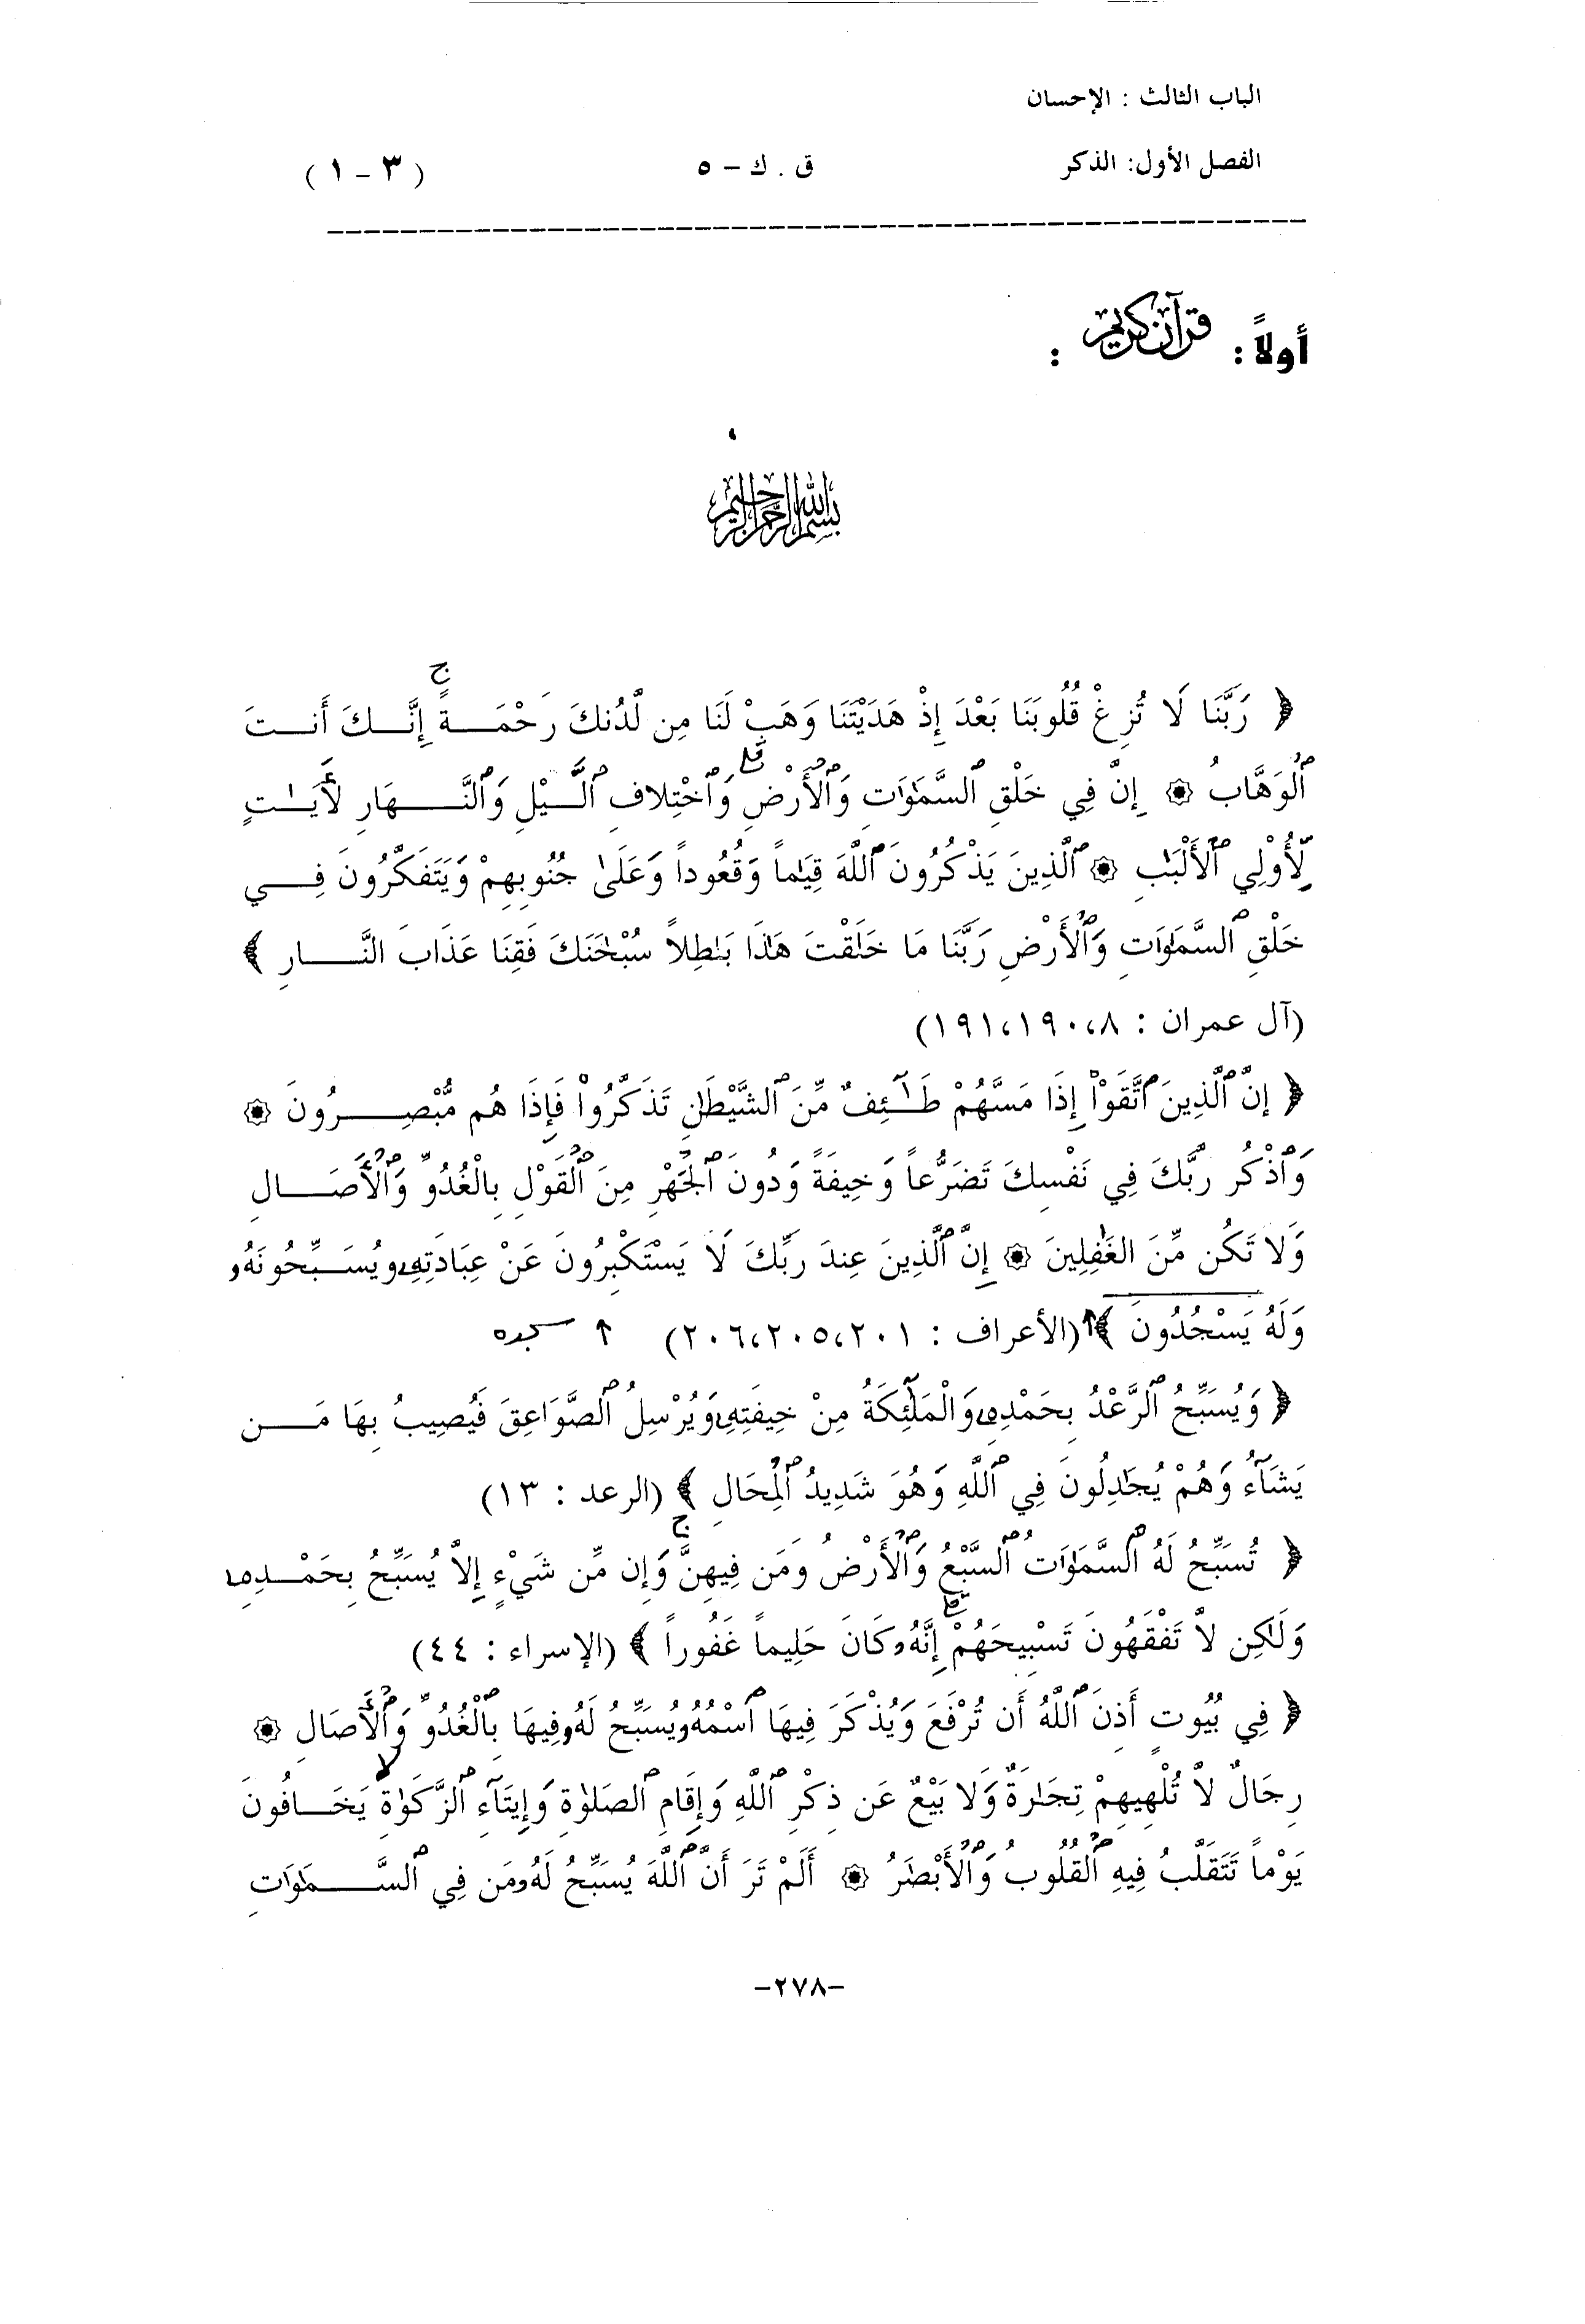 الباب الثالث : الإحسان
الفصل الأول: الذكر ق . ك – ٥ ( ٣ - ١ )
أولاً : قرآن كريم :
بسم الله الرحمن الرحيم
﴿ رَبَّنَا لَا تُزِغْ قُلُوبَنَا بَعْدَ إِذْ هَدَيْتَنَا وَهَبْ لَنَا مِن لَّدُنكَ رَحْمَـــةً ۚ إِنَّــكَ أَنــتَ
ٱلْوَهَّابُ ۞ إِنَّ فِي خَلْقِ ٱلسَّمَٰوَٰتِ وَٱلْأَرْضِ وَٱخْتِلافِ ٱلَّــيْلِ وَٱلنَّـــهَارِ لَأَيَـٰـتٍ
لِّأُوْلِي ٱلْأَلْبَٰبِ ۞ ٱلَّذِينَ يَذْكُرُونَ ٱللَّهَ قِيَٰماً وَقُعُوداً وَعَلَىٰ جُنُوبِهِمْ وَيَتَفَكَّرُونَ فِــي
خَلْقِ ٱلسَّمَٰوَٰتِ وَٱلْأَرْضِ رَبَّنَا مَا خَلَقْتَ هَٰذَا بَٰطِلاً سُبْحَٰنَكَ فَقِنَا عَذَابَ النَّـــارِ ﴾
(آل عمران : ٨،١٩٠،١٩١)
﴿ إِنَّ ٱلَّذِينَ ٱتَّقَوْاْ إِذَا مَسَّهُمْ طَـٰٓـئِفٌ مِّنَ ٱلشَّيْطَٰنِ تَذَكَّرُواْ فَإِذَا هُم مُّبْصِـــرُونَ ۞
وَٱذْكُر رَّبَّكَ فِي نَفْسِكَ تَضَرُّعاً وَخِيفَةً وَدُونَ ٱلْجَهْرِ مِنَ ٱلْقَوْلِ بِالْغُدُوِّ وَٱلْأَصَـــالِ
وَلا تَكُن مِّنَ الغَٰفِلِينَ ۞ إِنَّ ٱلَّذِينَ عِندَ رَبِّكَ لَا يَسْتَكْبِرُونَ عَنْ عِبَادَتِهِۦ ويُسَـــبِّحُونَهُۥ
وَلَهُ يَسْجُدُونَ ﴾ (الأعراف : ٢٠١،٢٠٥،٢٠٦) ↑ سجده
﴿ وَيُسَبِّحُ ٱلرَّعْدُ بِحَمْدِهِۦ وَالْمَلَٰٓئِكَةُ مِنْ خِيفَتِهِۦ وَيُرْسِلُ ٱلصَّوَاعِقَ فَيُصِيبُ بِهَا مَـــن
يَشَآءُ وَهُمْ يُجَٰدِلُونَ فِي ٱللَّهِ وَهُوَ شَدِيدُ ٱلْمِحَالِ ﴾ (الرعد : ١٣)
﴿ تُسَبِّحُ لَهُ ٱلسَّمَٰوَٰتُ ٱلسَّبْعُ وَٱلْأَرْضُ وَمَن فِيهِنَّ ۚ وَإِن مِّن شَيْءٍ إِلاَّ يُسَبِّحُ بِحَمْــدِهِۦ
وَلَٰكِن لاَّ تَفْقَهُونَ تَسْبِيحَهُمْ ۗ إِنَّهُۥ كَانَ حَلِيماً غَفُوراً ﴾ (الإسراء : ٤٤)
﴿ فِي بُيُوتٍ أَذِنَ ٱللَّهُ أَن تُرْفَعَ وَيُذْكَرَ فِيهَا ٱسْمُهُۥ يُسَبِّحُ لَهُۥ فِيهَا بِٱلْغُدُوِّ وَٱلْأَصَالِ ۞
رِجَالٌ لاَّ تُلْهِيهِمْ تِجَٰرَةٌ وَلَا بَيْعٌ عَن ذِكْرِ ٱللَّهِ وَإِقَامِ ٱلصَلَوٰةِ وَإِيتَآءِ ٱلزَّكَوٰةِ ۙ يَخَــافُونَ
يَوْماً تَتَقَلَّبُ فِيهِ ٱلْقُلُوبُ وَٱلْأَبْصَٰرُ ۞ أَلَمْ تَرَ أَنَّ ٱللَّهَ يُسَبِّحُ لَهُۥ مَن فِي ٱلسَّـــمَٰوَٰتِ
–٢٧٨–